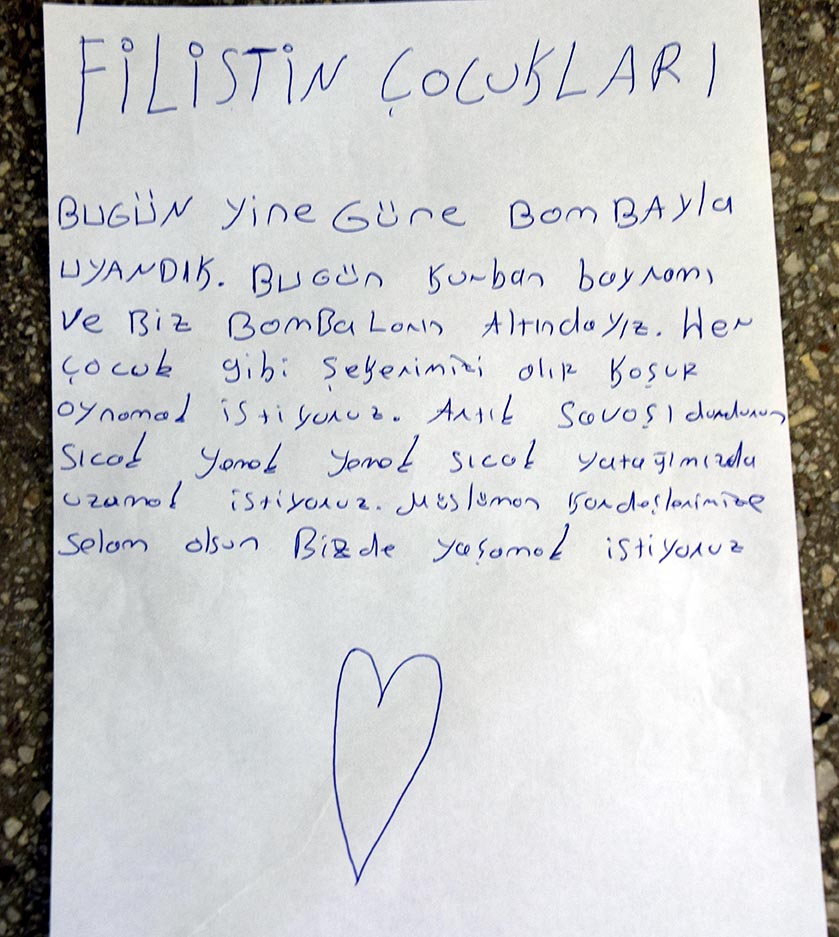 FİLİSTİN ÇOCUKLARI
BUGÜN yine GÜne BomBAyla
UYANDIK. BUGÜn Kurban bayramı
ve Biz BomBaLarın Altındayız. Her
Çocuk gibi Şekerimizi alıp koşup
oynamak istiyoruz. Artık Savaşı durdurun
Sıcak yemek yemek sıcak yatağımızda
uzamak istiyoruz. Müslüman Kardeşlerimize
Selam olsun Bizde yaşamak istiyoruz